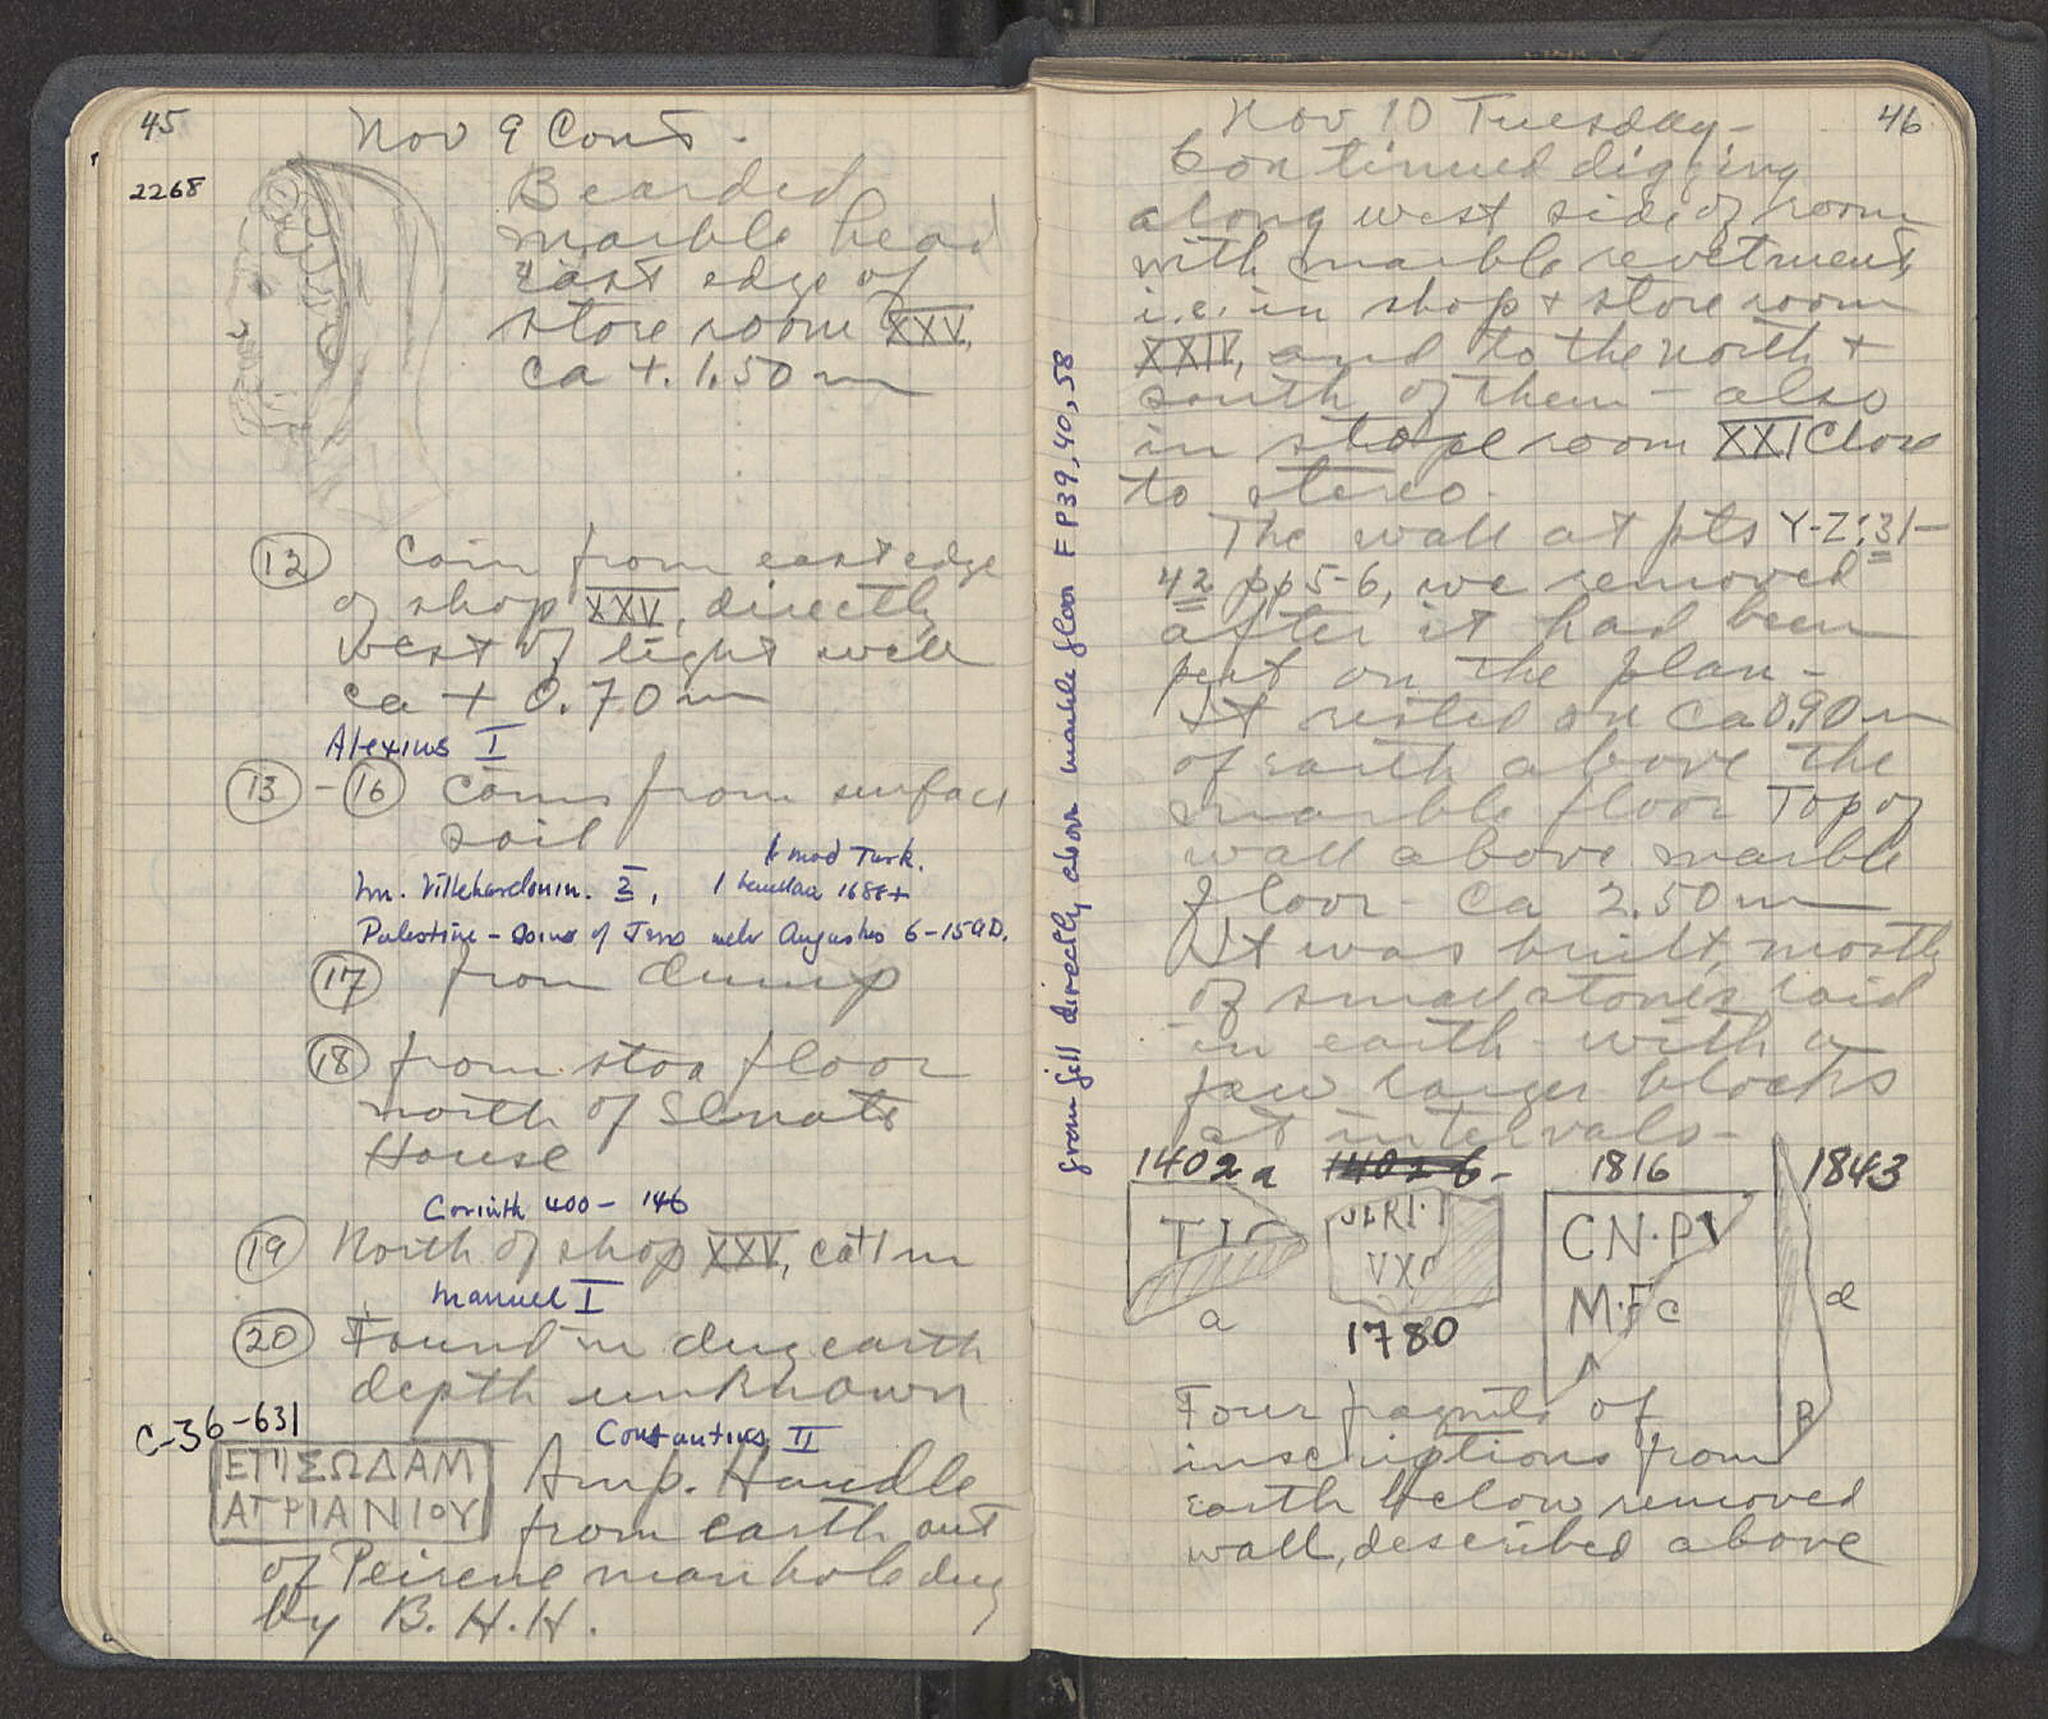 45
Nov 9 Cont -
2268
Bearded
marble head
east edge of
store room XXV,
ca +. 1.50 m
12 Coin from east edge
of shop XXV, directly
west of light well
ca + 0.70 m
Alexius I
13 - 16 Coins from surface
soil
1 mod Turk.
Wm. Villehardouin. 2, 1 1688+
Palestine - Augustus 6-15 A.D.
17 from dump
18 from stoa floor
north of Senate
House
Corinth 400 - 146
19 North of shop XXV, ca +1 m
Manuel I
20 Found in dug earth
depth unknown
Constantius II
C-36-631
ΕΠΙΣΩΔΑΜ
ΑΓΡΙΑΝΙΟΥ
Amp. Handle
from earth out
of Peirene manhole dug
by B. H. H.
46
Nov 10 Tuesday -
Continued digging
along west side of room
with marble revetment,
i.e. in shop + store room
XXIV, and to the north +
south of them - also
in store room XXI Close
to stereo.
The wall at pts Y-Z:31-
42 pp 5-6, we removed
after it had been
put on the plan -
It rested on ca 0.90 m
of earth above the
marble floor Top of
wall above marble
floor - ca 2.50 m
It was built, mostly
of small stones laid
in earth - with a
few larger blocks
at intervals -
from fill directly above marble floor FP39, 40, 58
1402a 1402 b - 1816 1843
TIC
a
VXO
1780
CN·PV
M·F c
d
R
Four fragmts of
inscriptions from
earth below removed
wall, described above